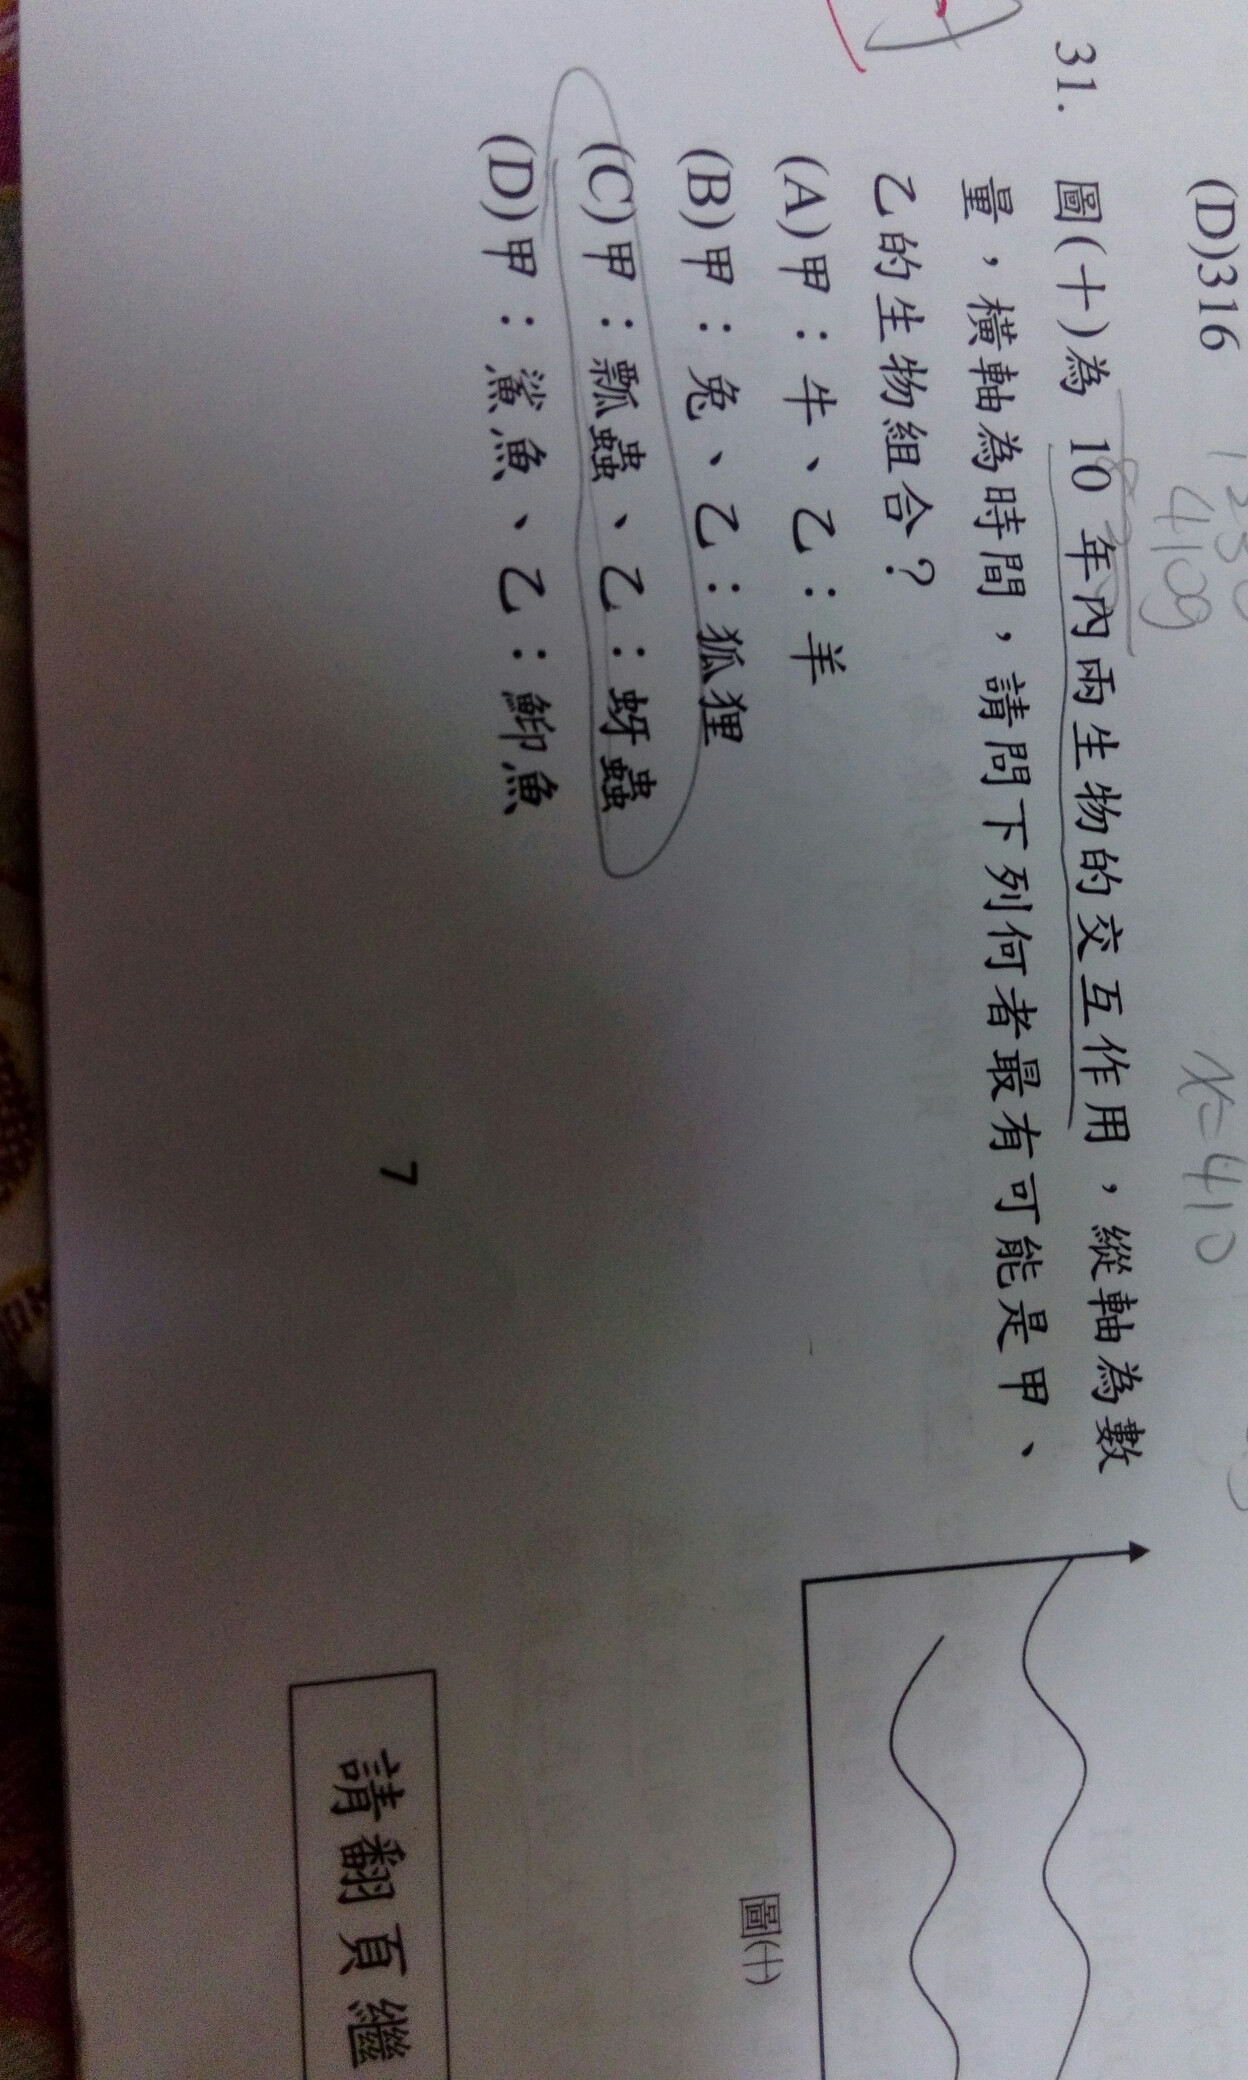 (D)316
410g
x=410
31. 圖(十)為 10 年內兩生物的交互作用，縱軸為數
量，橫軸為時間，請問下列何者最有可能是甲、
乙的生物組合？
(A)甲：牛、乙：羊
(B)甲：兔、乙：狐狸
(C)甲：瓢蟲、乙：蚜蟲
(D)甲：鯊魚、乙：鮣魚
圖(十)
7
請翻頁繼